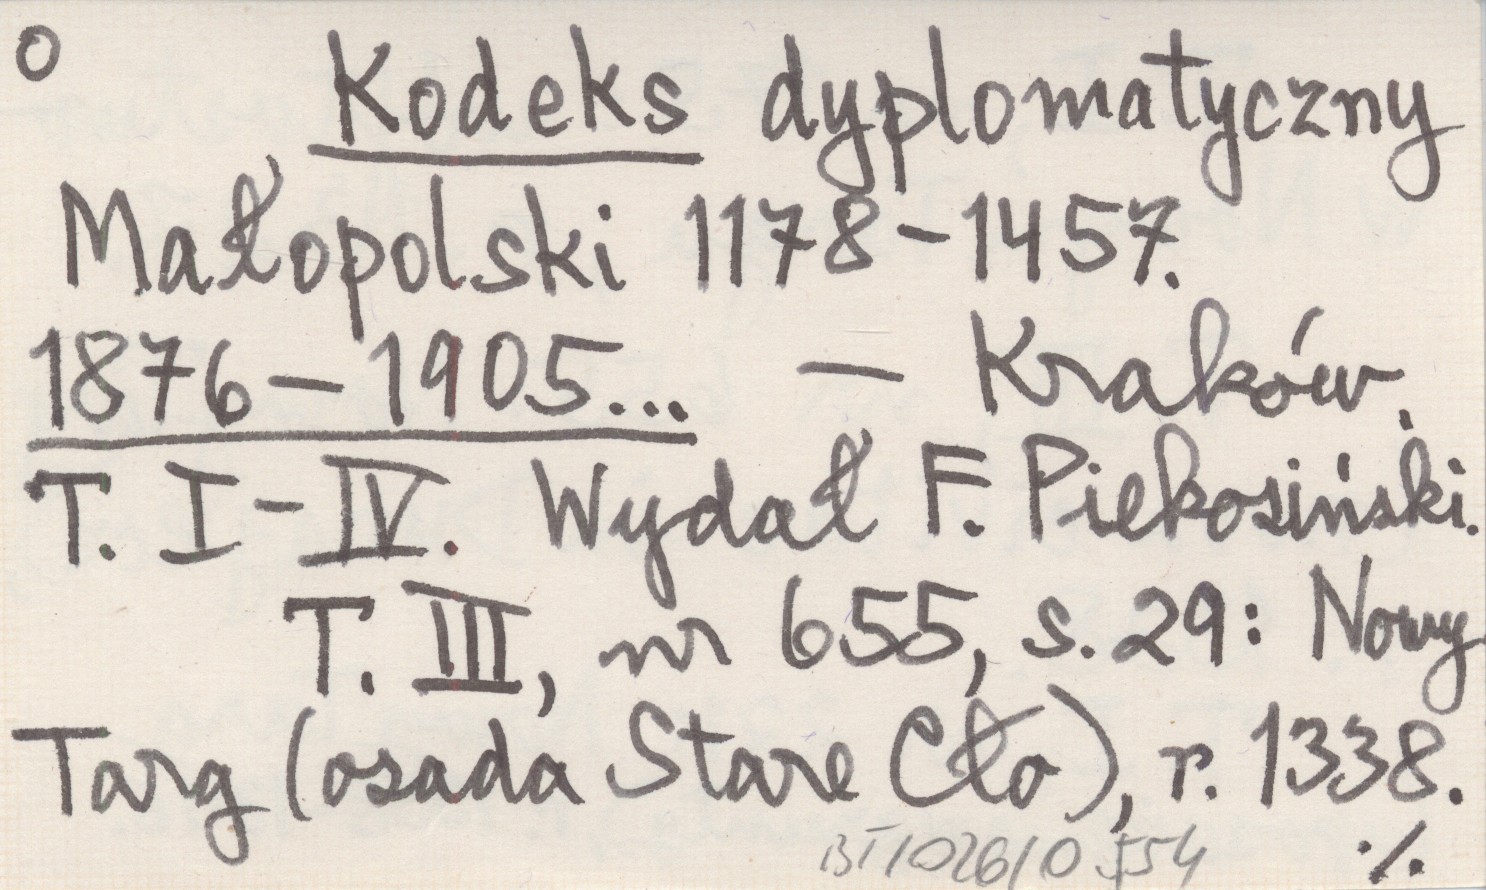 O Kodeks dyplomatyczny
Małopolski 1178-1457.
1876-1905... — Kraków.
T. I-IV. Wydał F. Piekosiński.
T. III, nr 655, s. 29: Nowy
Targ (osada Stare Cło), r. 1338.
BT/1026/0554
./.